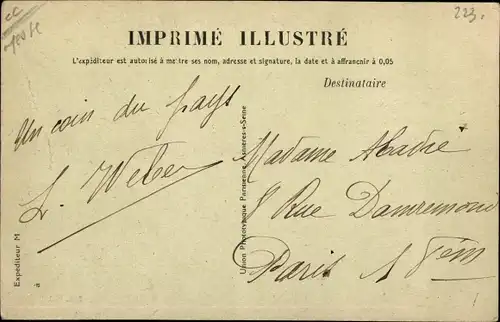 223.
IMPRIMÉ ILLUSTRÉ
L'expéditeur est autorisé à mettre ses nom, adresse et signature, la date et à affranchir à 0,05
Destinataire
Un coin du pays
L. Weber
Expéditeur M
a
Union Phototypique Parisienne Asnières-s-Seine
Madame
8 Rue Damremont
Paris